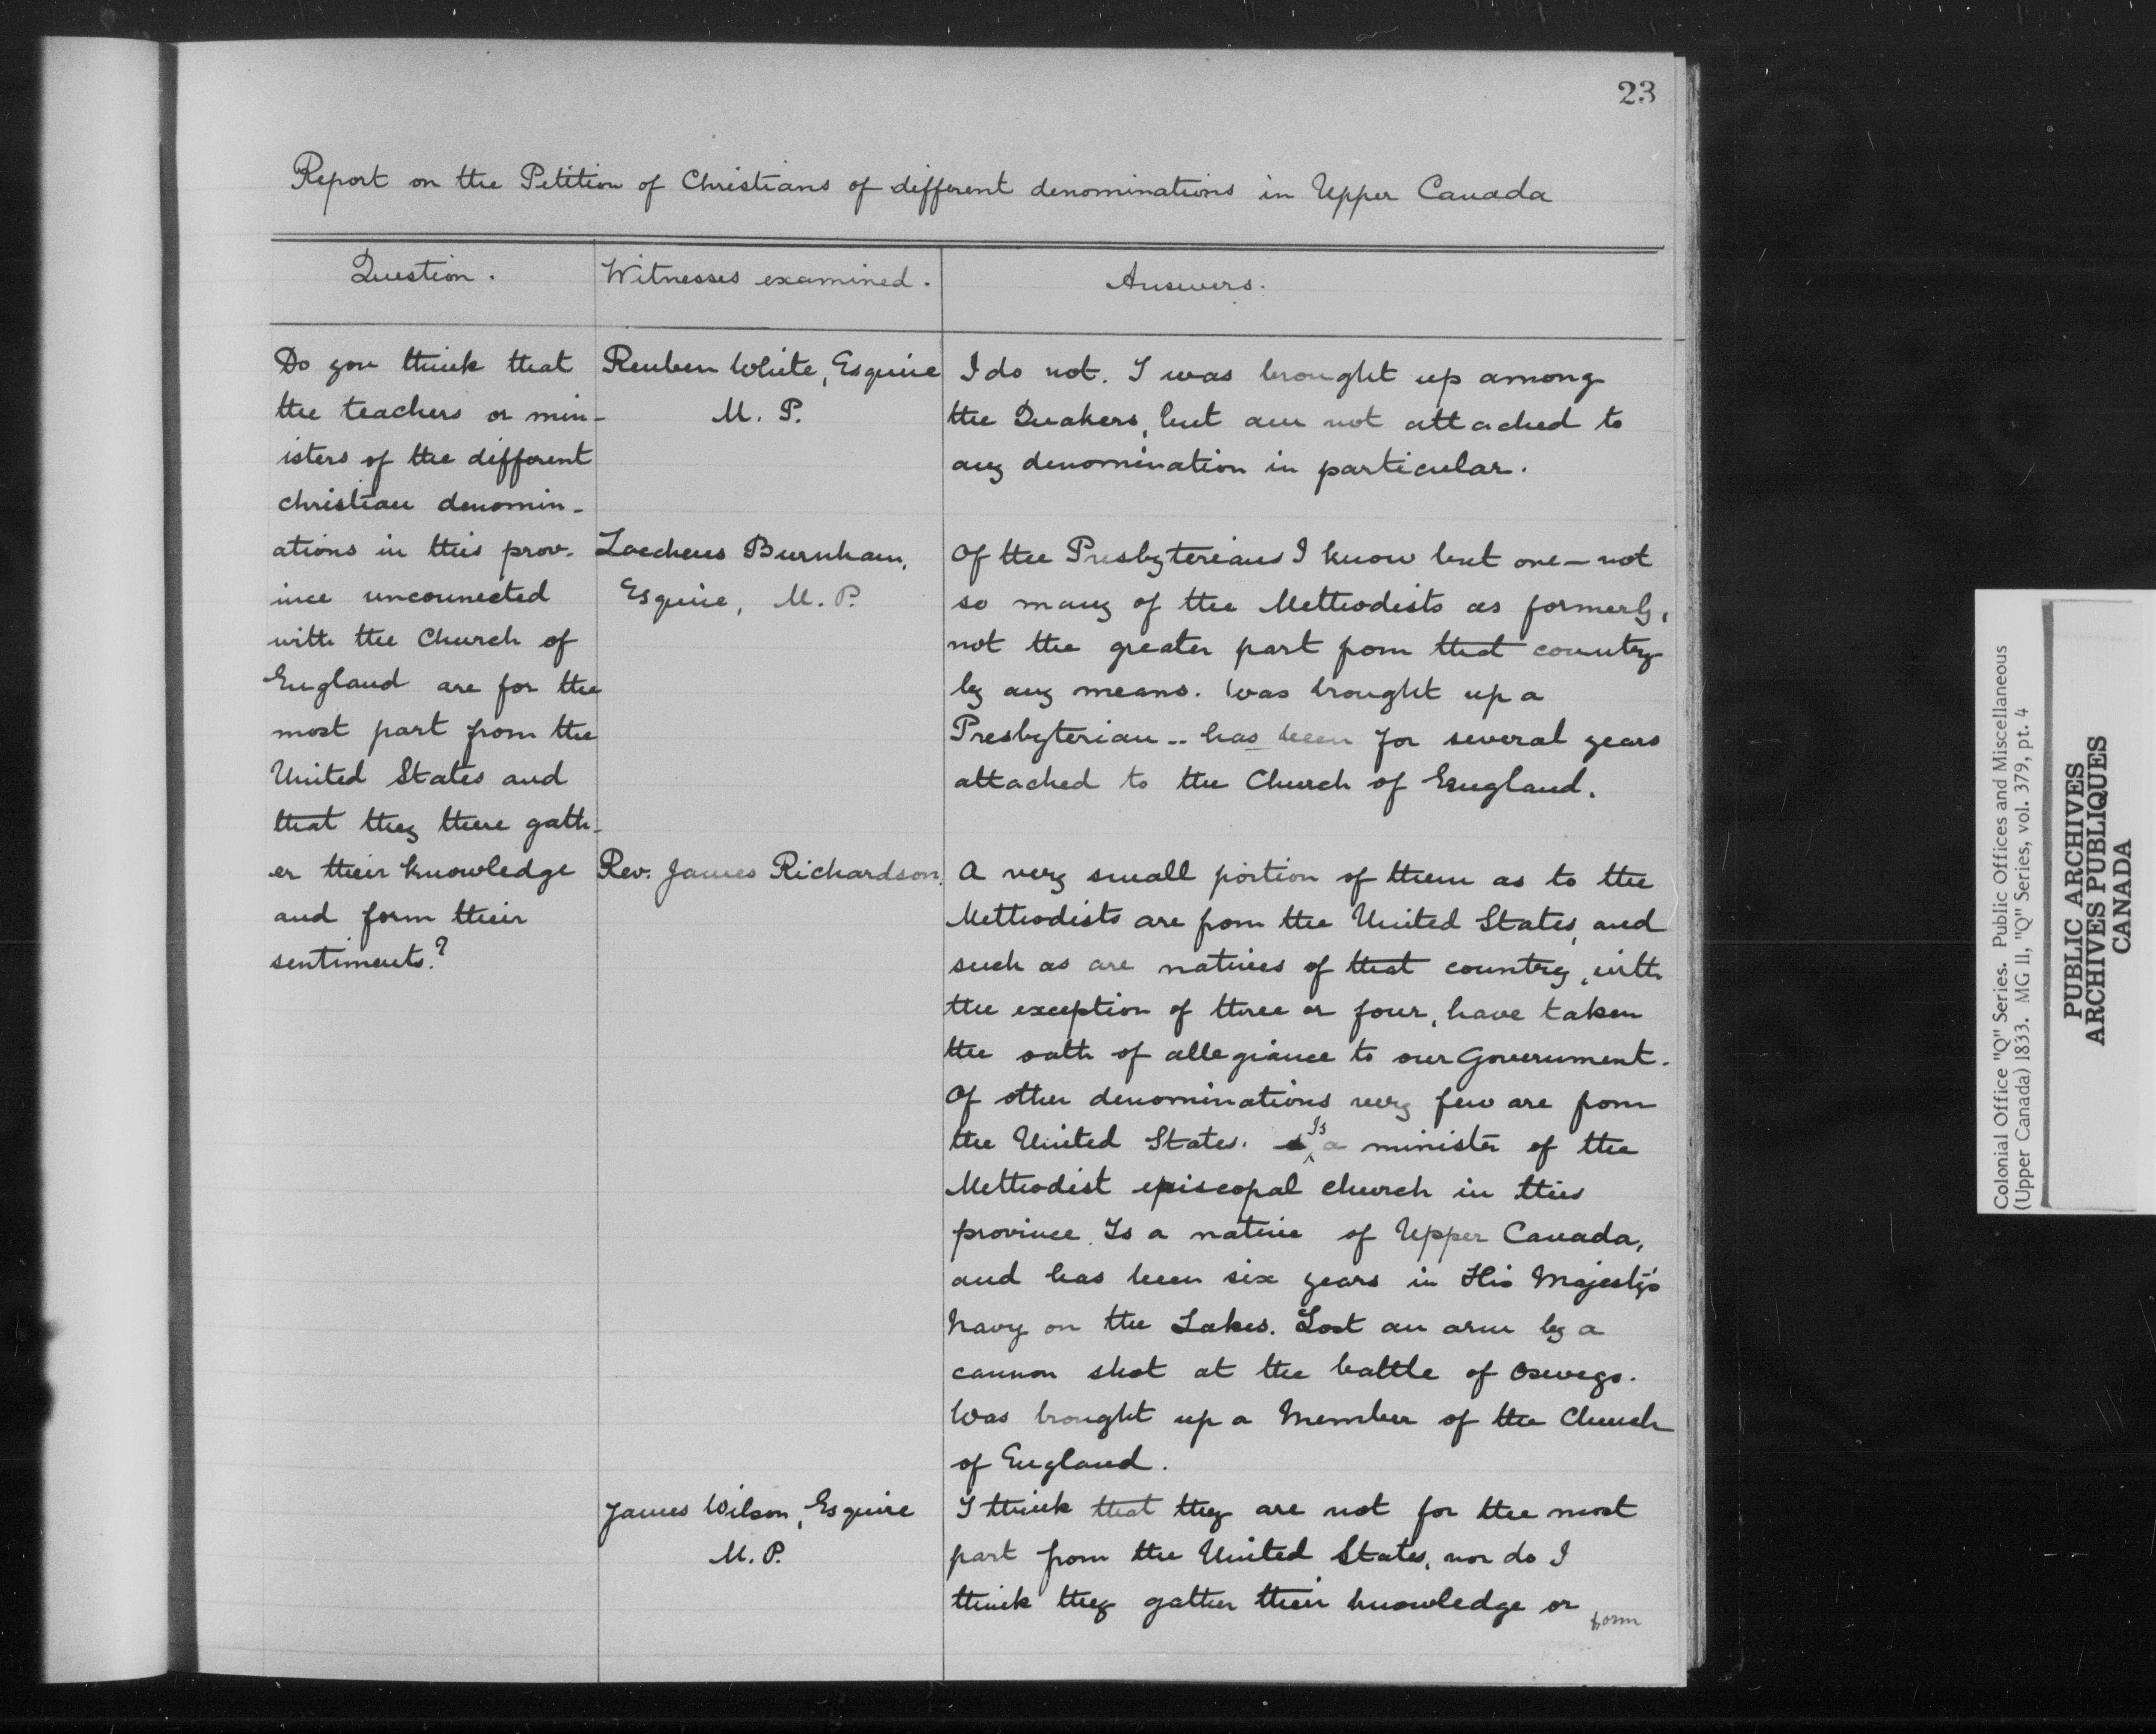 23
Report on the Petition of Christians of different denominations in Upper Canada
Question.
Witnesses examined.
Answers.
Do you think that
the teachers or min-
isters of the different
christian denomin-
ations in this prov-
ince unconnected
with the Church of
England are for the
most part from the
United States and
that they there gath-
er their knowledge
and form their
sentiments?
Reuben White, Esquire
M. P.
I do not. I was brought up among
the Quakers, but am not attached to
any denomination in particular.
Zacheus Burnham,
Esquire, M. P.
Of the Presbyterians I know but one — not
so many of the Methodists as formerly,
not the greater part from that country
by any means. Was brought up a
Presbyterian -- has been for several years
attached to the Church of England.
Rev. James Richardson.
A very small portion of them as to the
Methodists are from the United States, and
such as are natives of that country, with
the exception of three or four, have taken
the oath of allegiance to our Government.
Of other denominations very few are from
the United States. Is a minister of the
Methodist episcopal church in this
province. Is a native of Upper Canada,
and has been six years in His Majesty's
Navy on the Lakes. Lost an arm by a
cannon shot at the battle of Oswego.
Was brought up a Member of the Church
of England.
James Wilson, Esquire
M. P.
I think that they are not for the most
part from the United States, nor do I
think they gather their knowledge or
form
Colonial Office "Q" Series. Public Offices and Miscellaneous
(Upper Canada) 1833. MG 11, "Q" Series, vol. 379, pt. 4
PUBLIC ARCHIVES
ARCHIVES PUBLIQUES
CANADA